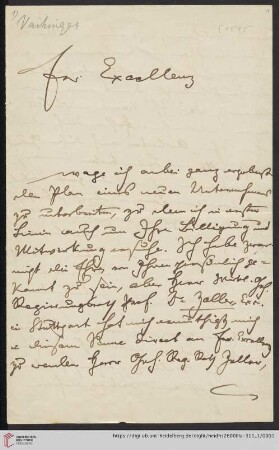 Vaihinger
Ew. Excellenz
wage ich anbei ganz ergebenst
den Plan eines neuen Unternehmens
zu unterbreiten, zu dem ich in erster
Linie auch um Ihre Billigung und
Mitwirkung ersuche. Ich habe zwar
nicht die Ehre, von Ihnen persönlich ge-
kannt zu sein, aber Herr Geh.
Regierungsrath Prof. Dr. Zeller
in Stuttgart hat mich ermuthigt, mich
in diesem Sinne direct an Ew. Excellenz
zu wenden. Herr Geh. Reg. Rath Zeller,
UNIVERSITÄTS-
BIBLIOTHEK
HEIDELBERG